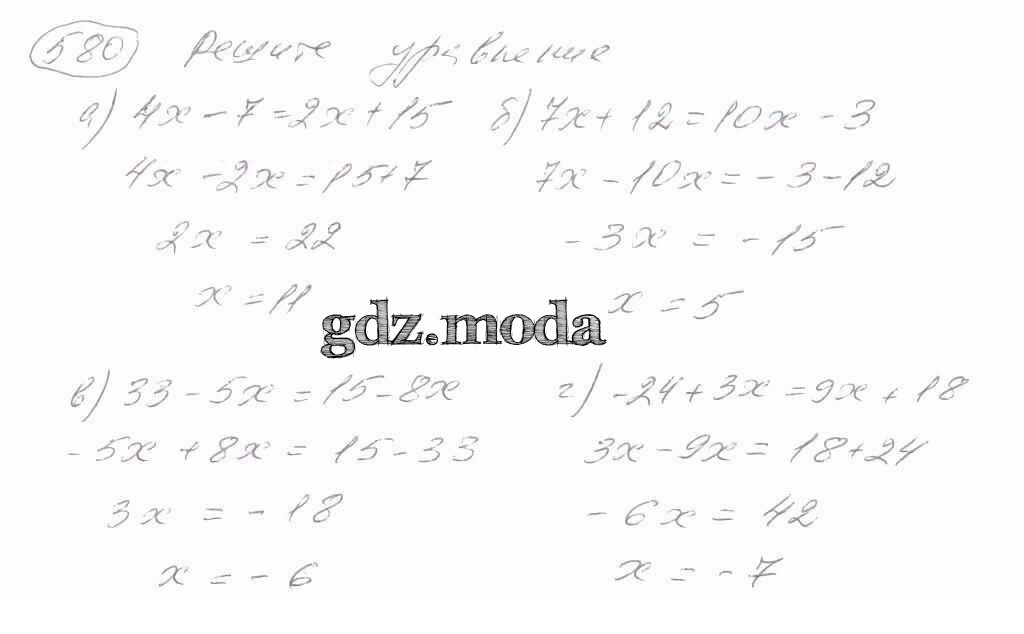 580 Решите уравнение
а) 4x - 7 = 2x + 15
4x - 2x = 15 + 7
2x = 22
x = 11
б) 7x + 12 = 10x - 3
7x - 10x = - 3 - 12
- 3x = - 15
x = 5
gdz.moda
в) 33 - 5x = 15 - 8x
- 5x + 8x = 15 - 33
3x = - 18
x = - 6
г) -24 + 3x = 9x + 18
3x - 9x = 18 + 24
- 6x = 42
x = - 7